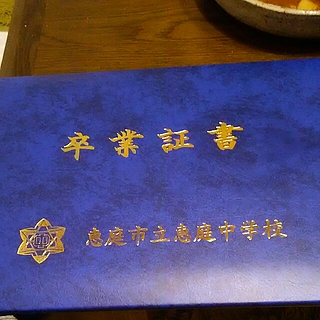 卒業証書
中
恵庭市立恵庭中学校